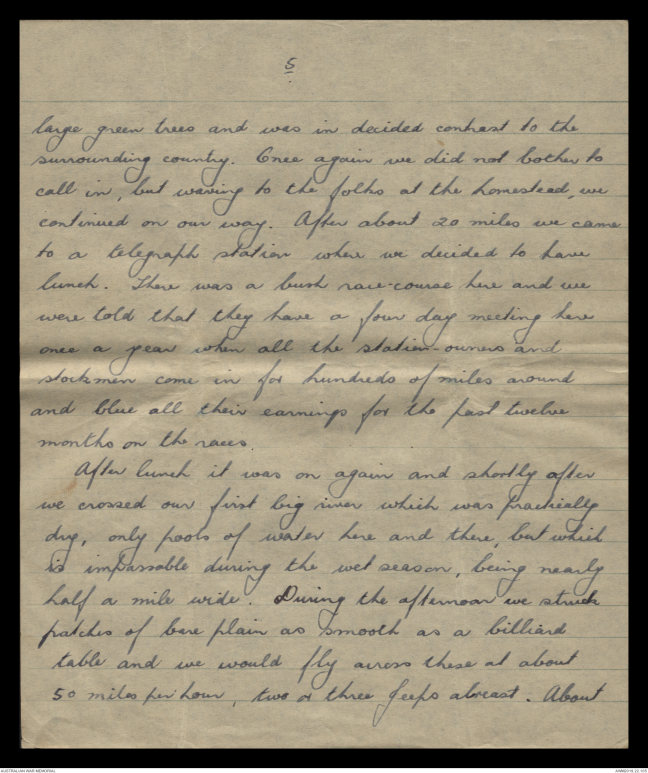 5
large green trees and was in decided contrast to the
surrounding country. Once again we did not bother to
call in, but waving to the folks at the homestead, we
continued on our way. After about 20 miles we came
to a telegraph station where we decided to have
lunch. There was a bush race-course here and we
were told that they have a four day meeting here
once a year when all the station-owners and
stockmen come in for hundreds of miles around
and blue all their earnings for the past twelve
months on the races.
After lunch it was on again and shortly after
we crossed our first big river which was practically
dry, only pools of water here and there, but which
is impassable during the wet season, being nearly
half a mile wide. During the afternoon we struck
patches of bare plain as smooth as a billiard
table and we would fly across these at about
50 miles per hour, two or three jeeps abreast. About
AUSTRALIAN WAR MEMORIAL